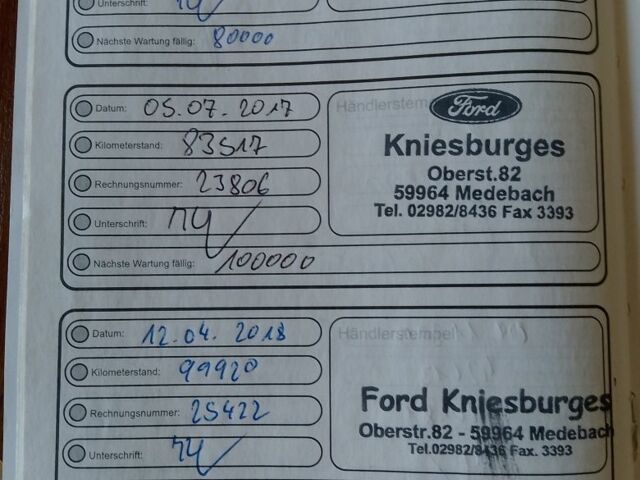 Unterschrift:
Nächste Wartung fällig: 80000
Datum: 05.07.2017
Kilometerstand: 83517
Rechnungsnummer: 23806
Unterschrift:
Nächste Wartung fällig: 100000
Händlerstempel
Ford
Kniesburges
Oberst.82
59964 Medebach
Tel. 02982/8436 Fax 3393
Datum: 12.04.2018
Kilometerstand: 99920
Rechnungsnummer: 25422
Unterschrift:
Händlerstempel
Ford Kniesburges
Oberstr.82 - 59964 Medebach
Tel.02982/8436 Fax. 3393